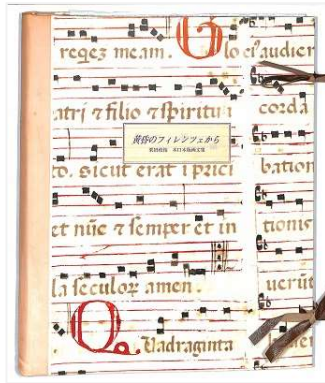 regez meam. Glo ci⁹ audier
atri ⁊ filio ⁊ spiritui corda
黄昏のフィレンツェから
to. sicut erat i prici bation
et nūc ⁊ semper et in tionis
la seculoꝝ amen. uerūt
Quadraginta